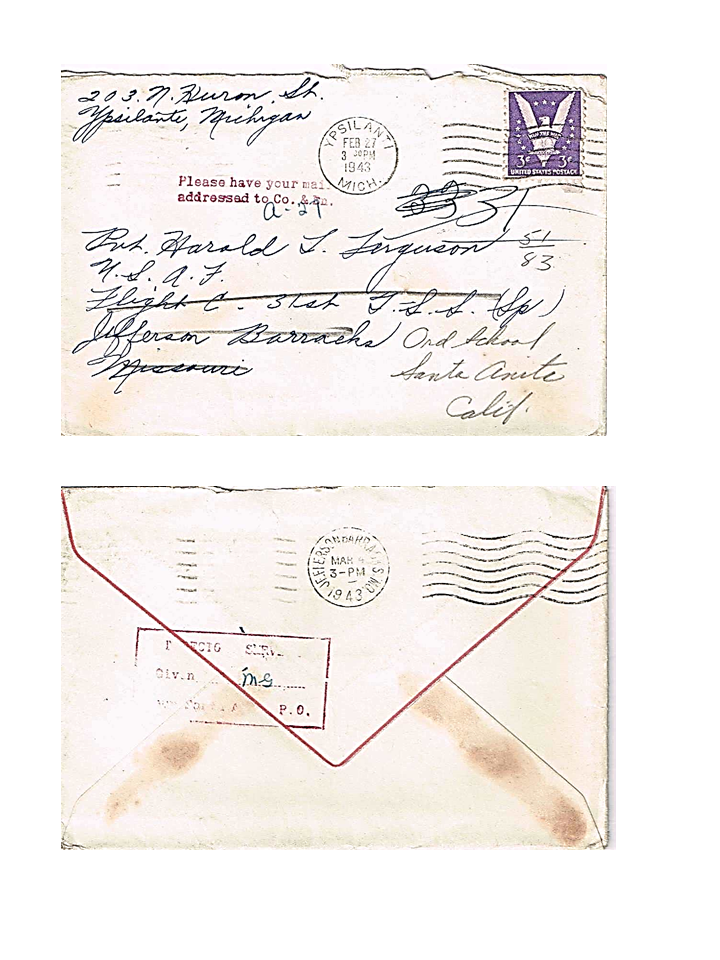 203 N. Huron St.
Ypsilanti, Michigan
YPSILANTI
FEB 27
3 30 PM
1943
MICH.
3¢ 3¢
UNITED STATES POSTAGE
Please have your mail
addressed to Co. &
A-29
331
Pvt. Harold L. Ferguson
51
83
U.S.A.F.
Flight C. 31st T.S.S. (Sp)
Jefferson Barracks Ord School
Missouri Santa Anita
Calif.
JEFFERSON BARRACKS, MO.
MAR 4
3-PM
1943
Giv.n MG
P.O.